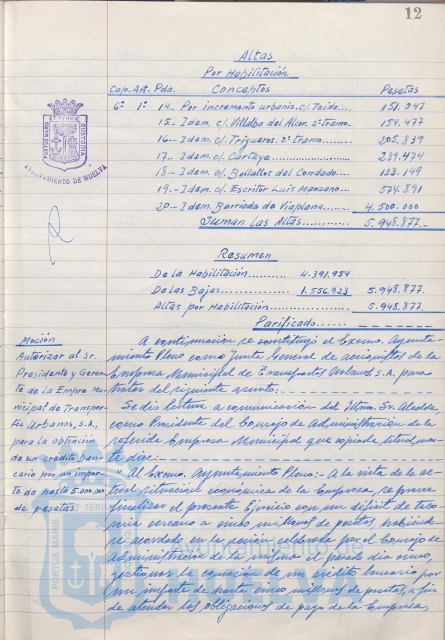 12
Altas
Por Habilitación
Cap. Art. Pda. Conceptos Pesetas
6º 1º 14.- Por incremento urbaniz. c/. Teide.... 151.047
15.- Idem. c/. Villalba del Alcor. 2º tramo. 154.477
16.- Idem c/. Trigueros. 2º tramo........ 205.839
17.- Idem. c/. Cartaya.................. 239.474
18.- Idem. c/. Bollullos del Condado.... 123.149
19.- Idem. c/. Escritor Luis Manzano.... 574.891
20.- Idem. Barriada de Viaplana....... 4.500.000
Suman las Altas............ 5.948.877.-
AYUNTAMIENTO DE HUELVA
Resumen
De la Habilitación.......... 4.391,954
De las Bajas................ 1.556.923 5.948.877.
Altas por Habilitación............ 5.948.877.
Parificado......
Moción
Autorizar al Sr.
Presidente y Geren
te de la Empre Mu-
nicipal de Transpor-
tes Urbanos, S.A.,
para la obtención
de un crédito ban-
cario por un impor-
te de hasta 5.000.000
de pesetas.
A continuación se constituyó el Excmo. Ayunta-
miento Pleno como Junta General de accionistas de la
Empresa Municipal de Transportes Urbanos, S.A. para
tratar del siguiente asunto:
Se dió lectura a comunicación del Iltmo. Sr. Alcalde
como Presidente del Consejo de Administración de la
referida Empresa Municipal que copiada literalmen-
te dice:
" Al Excmo. Ayuntamiento Pleno:- A la vista de la ac-
tual situación económica de la Empresa, se prevé
finalizar el presente Ejercicio con un déficit de teso-
rería cercano a cinco millones de pesetas, habiéndo-
se acordado en la sesión celebrada por el Consejo de
Administración de la misma el pasado día cinco,
gestionar la concesión de un crédito bancario por
un importe de hasta cinco millones de pesetas, a fin
de atender las obligaciones de pago de la Empresa,